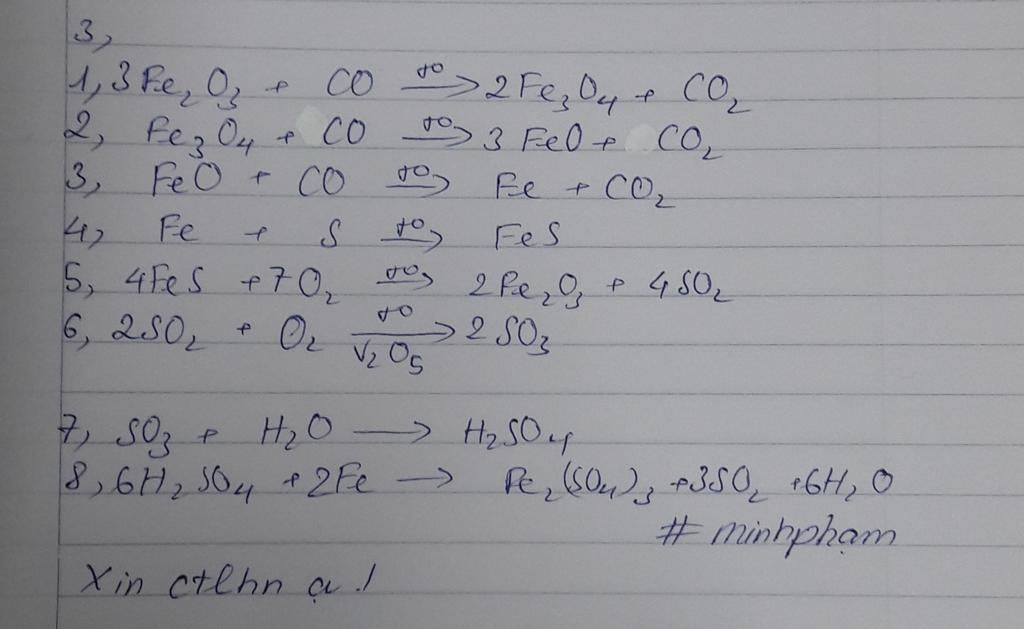 3,
1, 3Fe₂O₃ + CO →(t⁰) 2Fe₃O₄ + CO₂
2, Fe₃O₄ + CO →(t⁰) 3 FeO + CO₂
3, FeO + CO →(t⁰) Fe + CO₂
4, Fe + S →(t⁰) FeS
5, 4FeS + 7O₂ →(t⁰) 2Fe₂O₃ + 4SO₂
6, 2SO₂ + O₂ →(t⁰, V₂O₅) 2SO₃
7, SO₃ + H₂O → H₂SO₄
8, 6H₂SO₄ + 2Fe → Fe₂(SO₄)₃ + 3SO₂ + 6H₂O
# minhphạm
Xin ctlhn ạ !